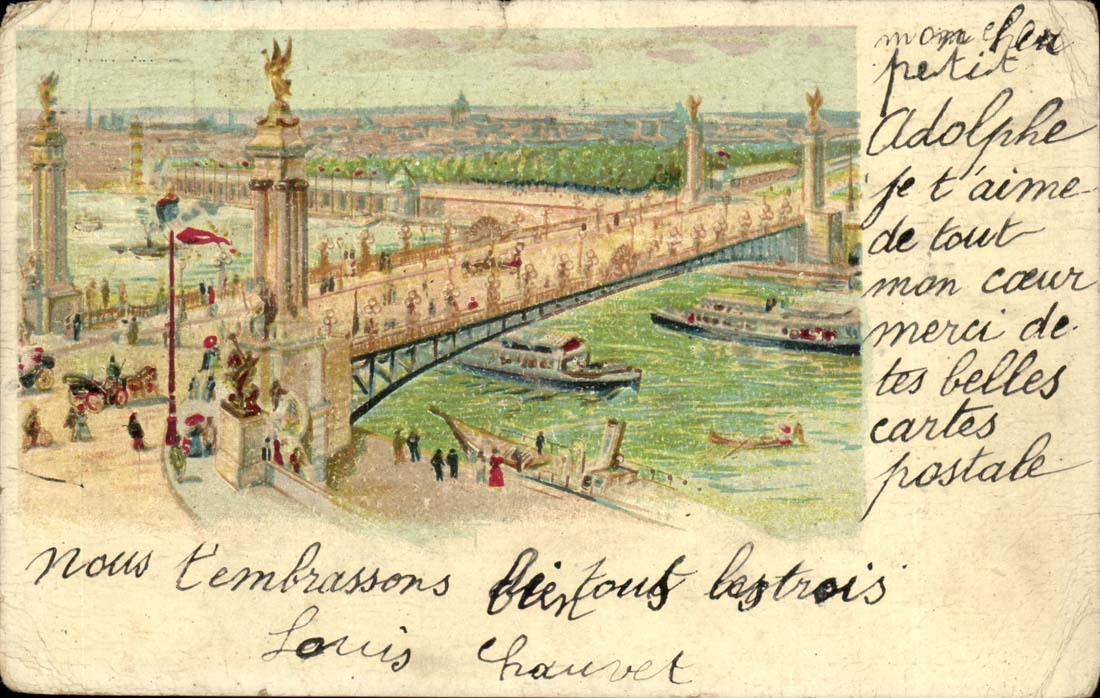 mon cher
petit
Adolphe
je t'aime
de tout
mon cœur
merci de
tes belles
cartes
postale
Nous t'embrassons bien tous les trois
Louis Chauvet